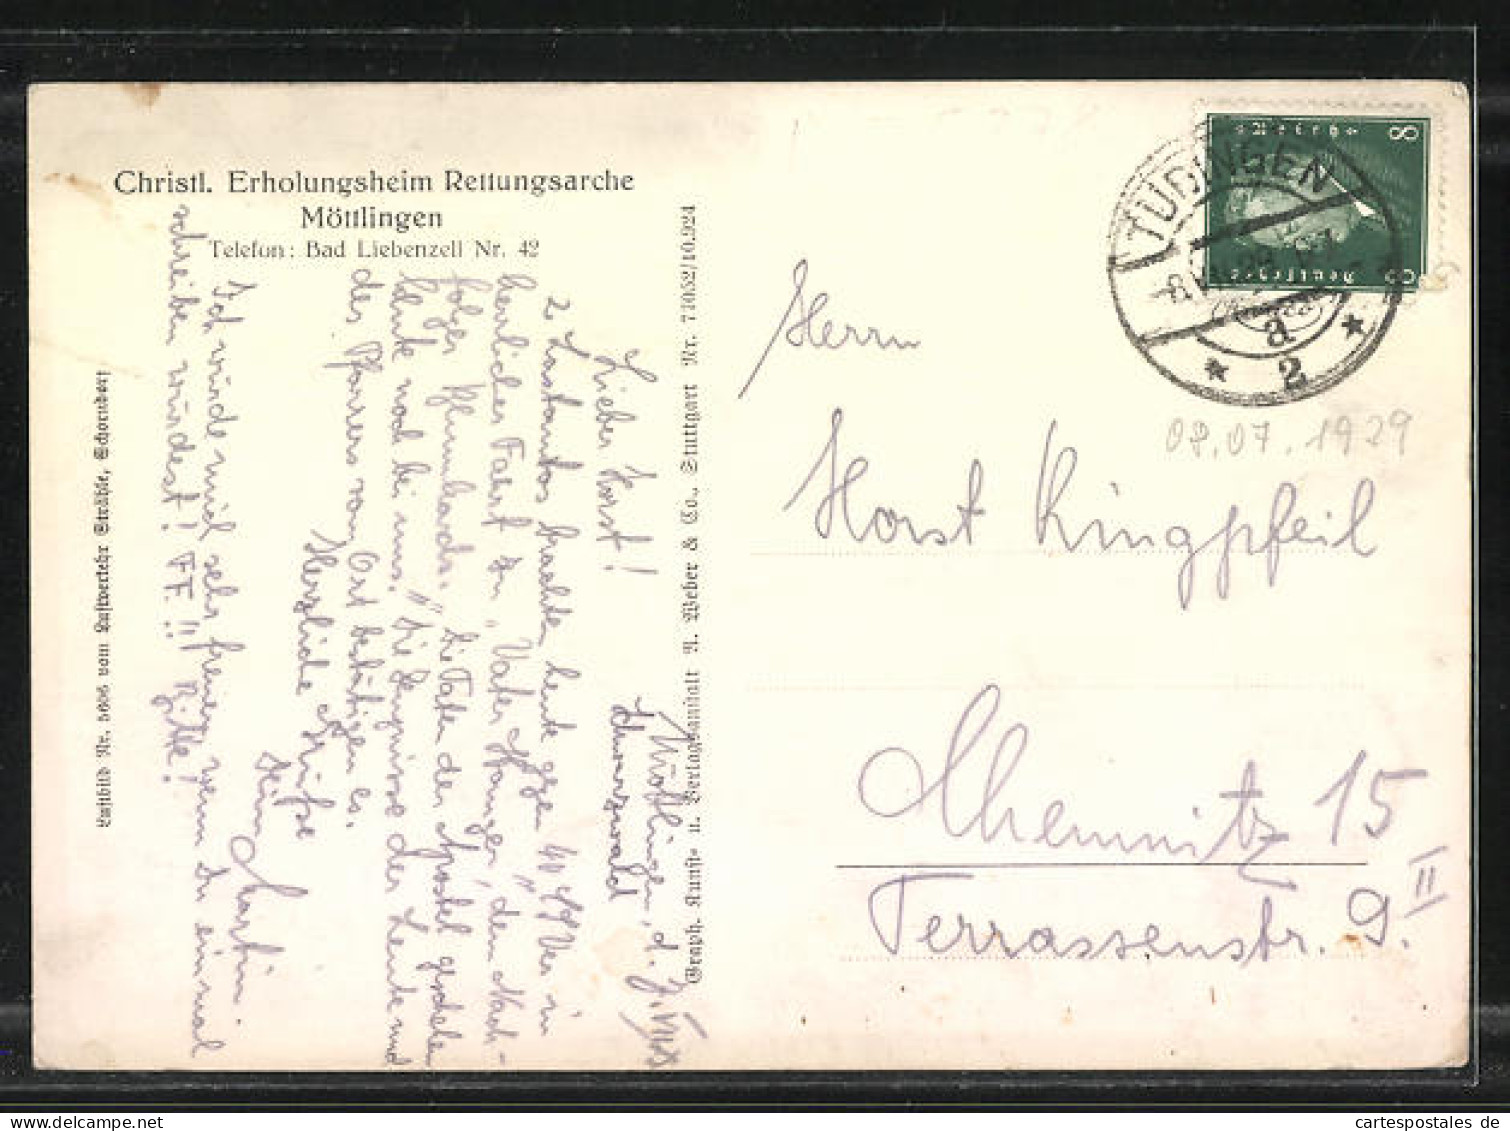 Christl. Erholungsheim Rettungsarche
Möttlingen
Telefon: Bad Liebenzell Nr. 42
Möttlingen, d.
Schwarzwald
Lieber Horst!
2 Lastautos brachten heute gege 40 CVJMer in
herrlicher Fahrt zu „Vater Stanger", dem Nach-
folger Blumhardts. Die Taten der Apostel geschehen
heute noch bei uns." Die Zeugnisse der Leute und
des Pfarrers vom Ort bestätigen es.
Herzliche Grüße
Dein Martin.
Ich würde mich sehr freuen, wenn Du einmal
schreiben würdest! F.F.!! Bitte!
Luftbild Nr. 5606 vom Luftverkehr Strähle, Schorndorf
Graph. Kunst- u. Verlagsanstalt A. Weber & Co., Stuttgart Nr. 71052/10.924
8
Deutsches Reich
TÜBINGEN
a
* 2 *
08.07.1929
Herrn
Horst Klingpfeil
Chemnitz 15
Terrassenstr. 9. II
cartespostales de